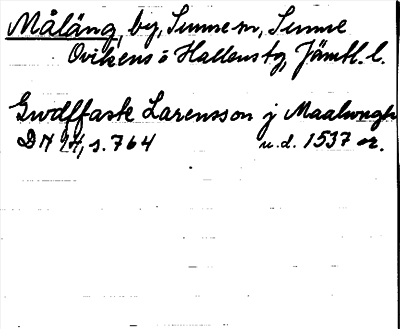 Målång, by, Sunne sn, Sunne
Ovikens o Hallens tg, Jämtl. l.
Gwdffaste Larensson j Maalongh
DN 14, s. 764 u.d. 1537 or.